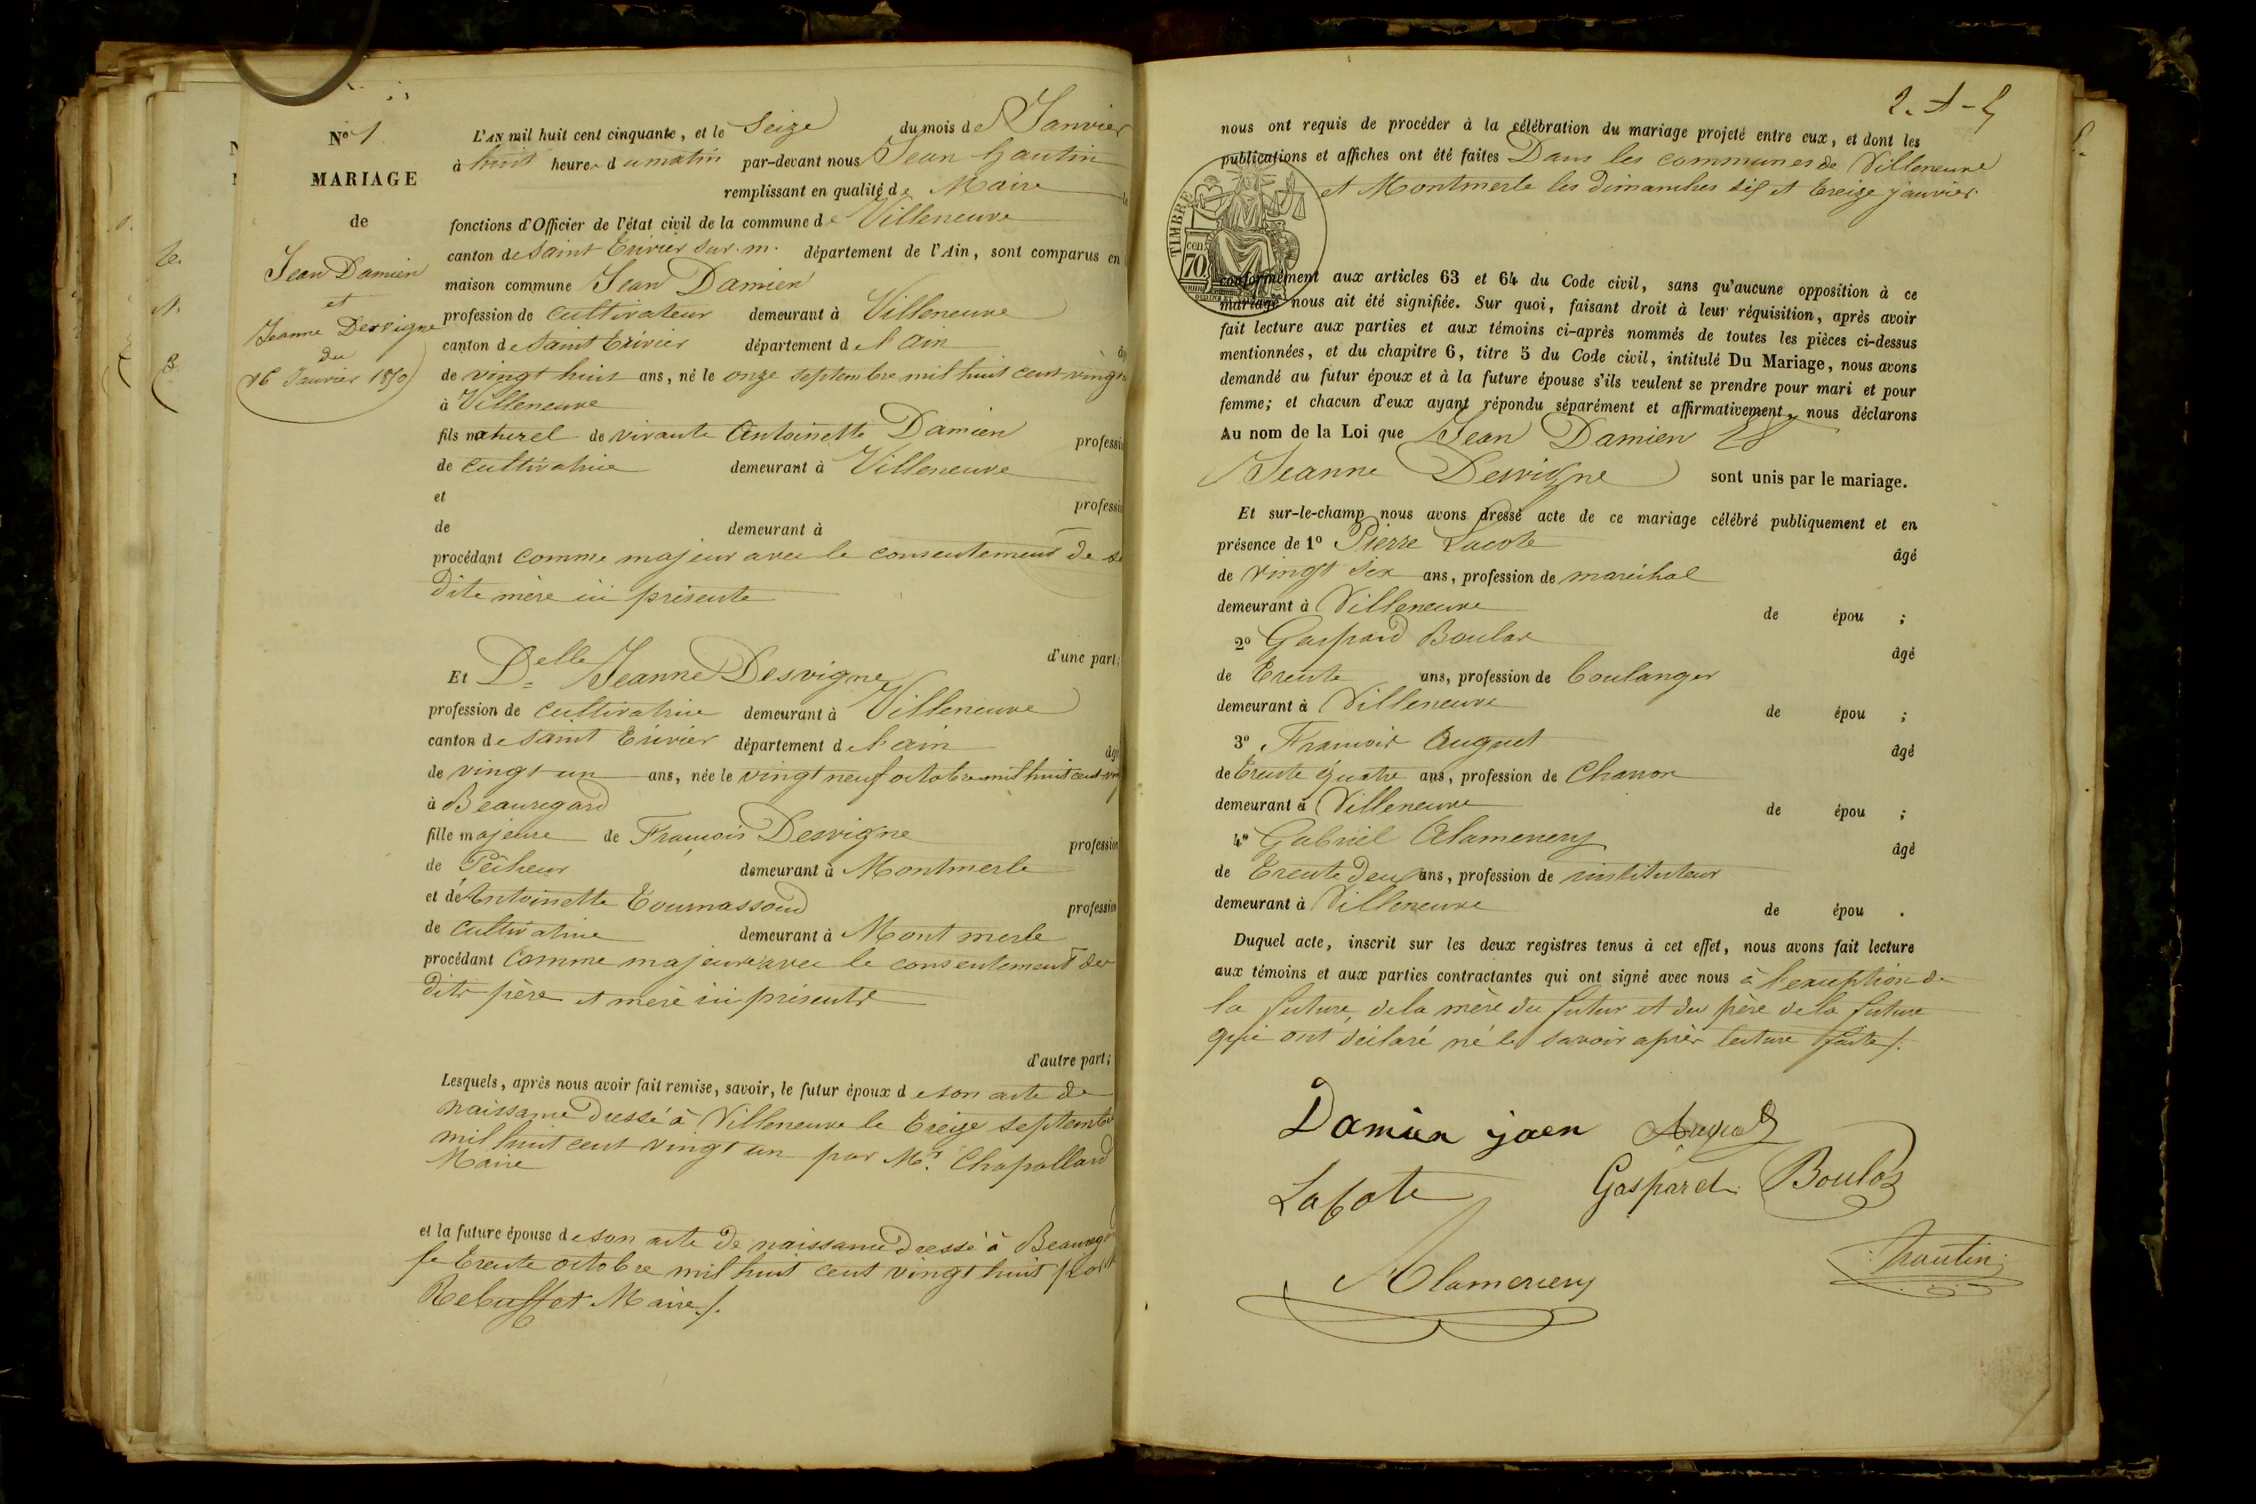 N° 1
MARIAGE
de
Jean Damien
et
Jeanne Desvigne
du
16 Janvier 1850
L'AN mil huit cent cinquante, et le Seize du mois de Janvier
à huit heure du matin par-devant nous Jean Gautin
remplissant en qualité de Maire
fonctions d'Officier de l'état civil de la commune de Villeneuve
canton de Saint Trivier sur m. département de l'Ain, sont comparus en
maison commune Jean Damien
profession de cultivateur demeurant à Villeneuve
canton de Saint Trivier département de l'ain
de vingt huit ans, né le onze septembre mil huit cent vingt
à Villeneuve
fils naturel de vivante Antoinette Damien professi
de cultivatrice demeurant à Villeneuve
et professi
de demeurant à
procédant comme majeur avec le consentement de sa
dite mère ici présente
d'une part;
Et Delle Jeanne Desvigne
profession de cultivatrice demeurant à Villeneuve
canton de Saint Trivier département de l'ain
âg
de vingt un ans, née le vingt neuf octobre mil huit cent
à Beauregard
fille majeure de François Desvigne profession
de Pêcheur demeurant à Montmerle
et de Antoinette Tournassoud profession
de cultivatrice demeurant à Montmerle
procédant comme majeure avec le consentement des
dits père et mère ici présents
d'autre part;
Lesquels, après nous avoir fait remise, savoir, le futur époux de son acte de
naissance dressé à Villeneuve le treize septembre
mil huit cent vingt un par Mr. Chapollard
Maire
et la future épouse de son acte de naissance dressé à Beauregard
le trente octobre mil huit cent vingt huit
Rebuffet Maire
nous ont requis de procéder à la célébration du mariage projeté entre eux, et dont les
publications et affiches ont été faites Dans les communes de Villeneuve
et Montmerle les dimanches six et treize janvier
TIMBRE
cen
70
conformément aux articles 63 et 64 du Code civil, sans qu'aucune opposition à ce
mariage nous ait été signifiée. Sur quoi, faisant droit à leur réquisition, après avoir
fait lecture aux parties et aux témoins ci-après nommés de toutes les pièces ci-dessus
mentionnées, et du chapitre 6, titre 5 du Code civil, intitulé Du Mariage, nous avons
demandé au futur époux et à la future épouse s'ils veulent se prendre pour mari et pour
femme; et chacun d'eux ayant répondu séparément et affirmativement, nous déclarons
Au nom de la Loi que Jean Damien et
Jeanne Desvigne sont unis par le mariage.
Et sur-le-champ nous avons dressé acte de ce mariage célébré publiquement et en
présence de 1° Pierre Lacote âgé
de vingt six ans, profession de maréchal
demeurant à Villeneuve de épou ;
2° Gaspard Boulas âgé
de trente ans, profession de boulanger
demeurant à Villeneuve de épou ;
3° François Auguet âgé
de trente quatre ans, profession de charron
demeurant à Villeneuve de épou ;
4° Gabriel Alamercery âgé
de trente deux ans, profession de instituteur
demeurant à Villeneuve de épou .
Duquel acte, inscrit sur les deux registres tenus à cet effet, nous avons fait lecture
aux témoins et aux parties contractantes qui ont signé avec nous à l'exception de
la future, de la mère du futur et du père de la future
qui ont déclaré ne le savoir après lecture faite
Damien jaen
Lacote
Gaspard Boulas
Alamercery